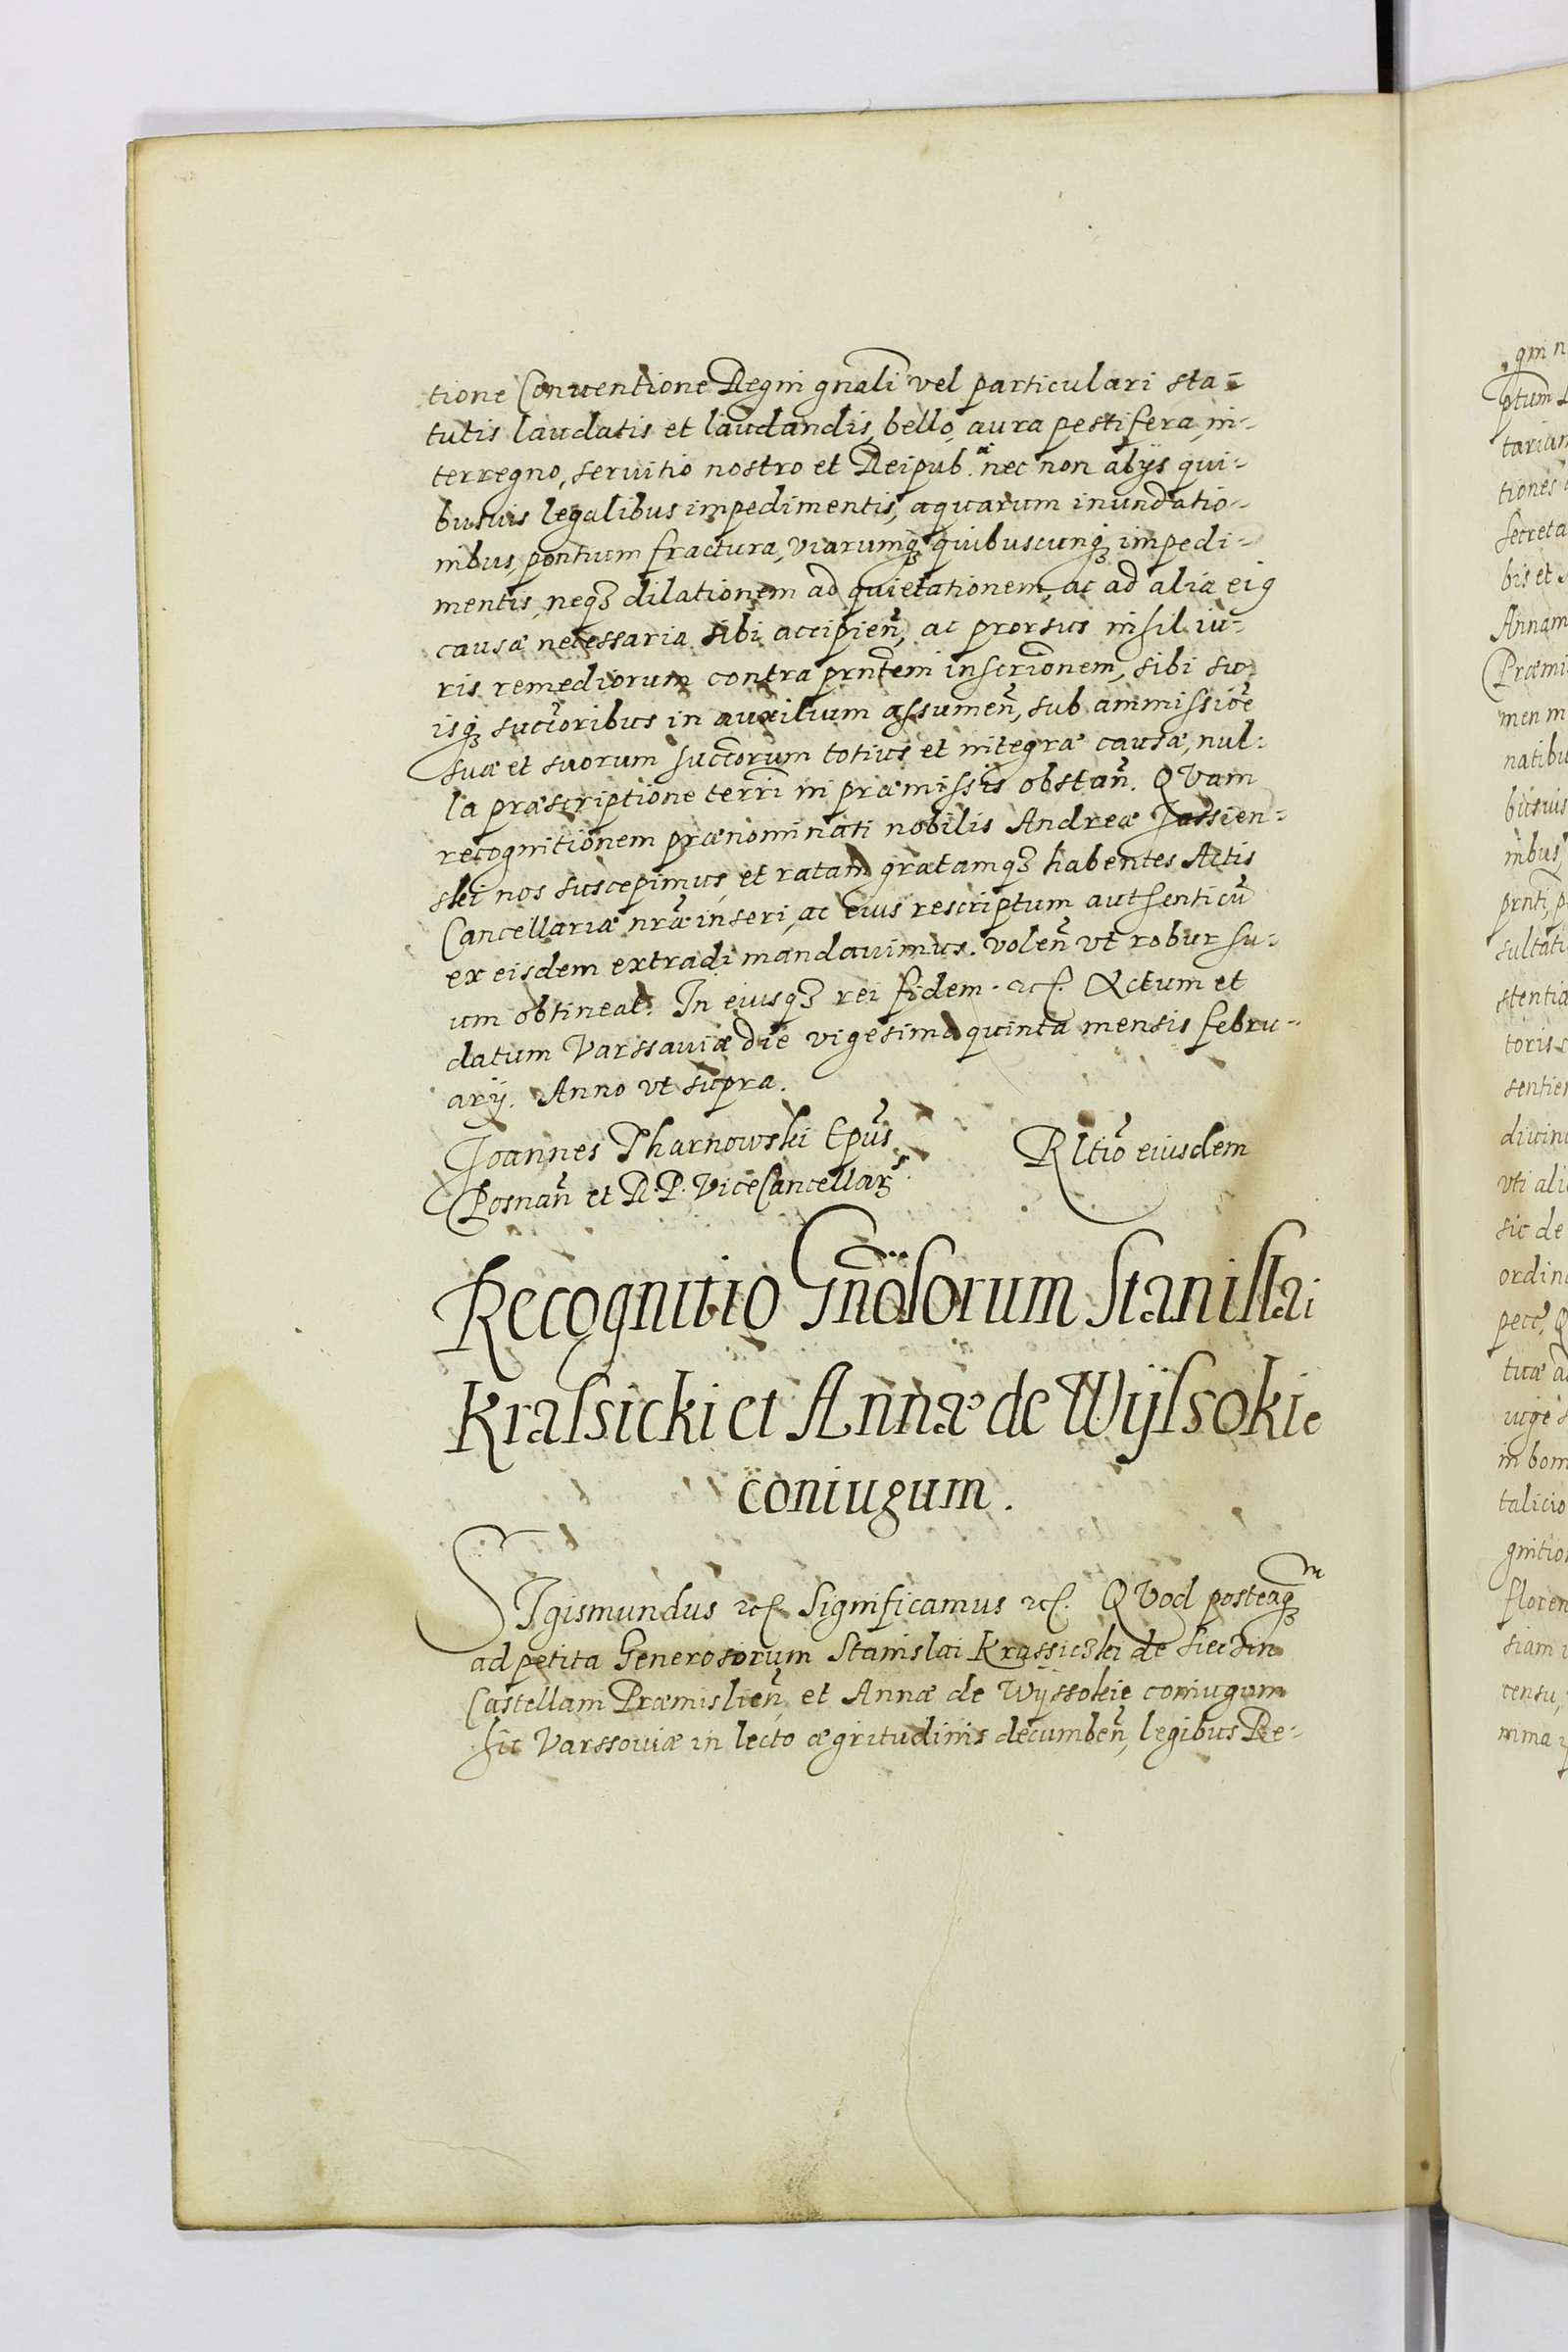 tione Conventione Regni gnali vel particulari sta-
tutis laudatis et laudandis, bello, aura pestifera, in-
terregno, servitio nostro et Reipub. nec non alijs qui-
busvis legalibus impedimentis, aquarum inundatio-
nibus, pontium fractura, viarumq3 quibuscunq3 impedi-
mentis, neq3 dilationem ad quietationem, ac ad alia ei9
causæ necessaria sibi accipien̄, ac prorsus nihil iu-
ris remediorum contra prntem inscrionem, sibi su-
isq3 succoribus in auxilium assumen̄, sub ammissioē
suæ et suorum succorum totius et integræ causæ, nul-
la præscriptione terrri in præmissis obstan̄. QVam
recognitionem prænominati nobilis Andreæ Jassien-
ski nos suscepimus, et ratam gratamq3 habentes Actis
Cancellariæ nræ inseri, ac eius rescriptum authenticū
ex eisdem extradi mandavimus. volen̄ vt robur su-
um obtineat. In eiusq3 rei fidem. etc. Actum et
datum Varssaviæ die vigesima quinta mensis febru-
arij. Anno vt supra.
Joannes Tharnowski Epūs
Posnan̄ et R. P. ViceCancellar9.
Rltio eiusdem
Recognitio Gn̄osorum Stanislai
Krassicki et Annæ de Wÿssokie
coniugum.
SIgismundus etc. Significamus etc. QVod posteaq3m
ad petita Generosorum Stanislai Krassiczki de Siecin
Castellani Præmislien̄, et Annæ de Wÿssokie coniugum
hic Varssoviæ in lecto ægritudinis decumben̄, legibus Re-
qm n
ptum
tarium
tiones
Secreta
bis et
Annam
Præmi
men m
natibu
busvis
nibus
prnti, p
sultati
stentia
toris
sentien
divin
vti ali
sic de
ordina
pecc, Q
tuæ a
in bon
talicio
gnitio
floren
siam
censu,
mma